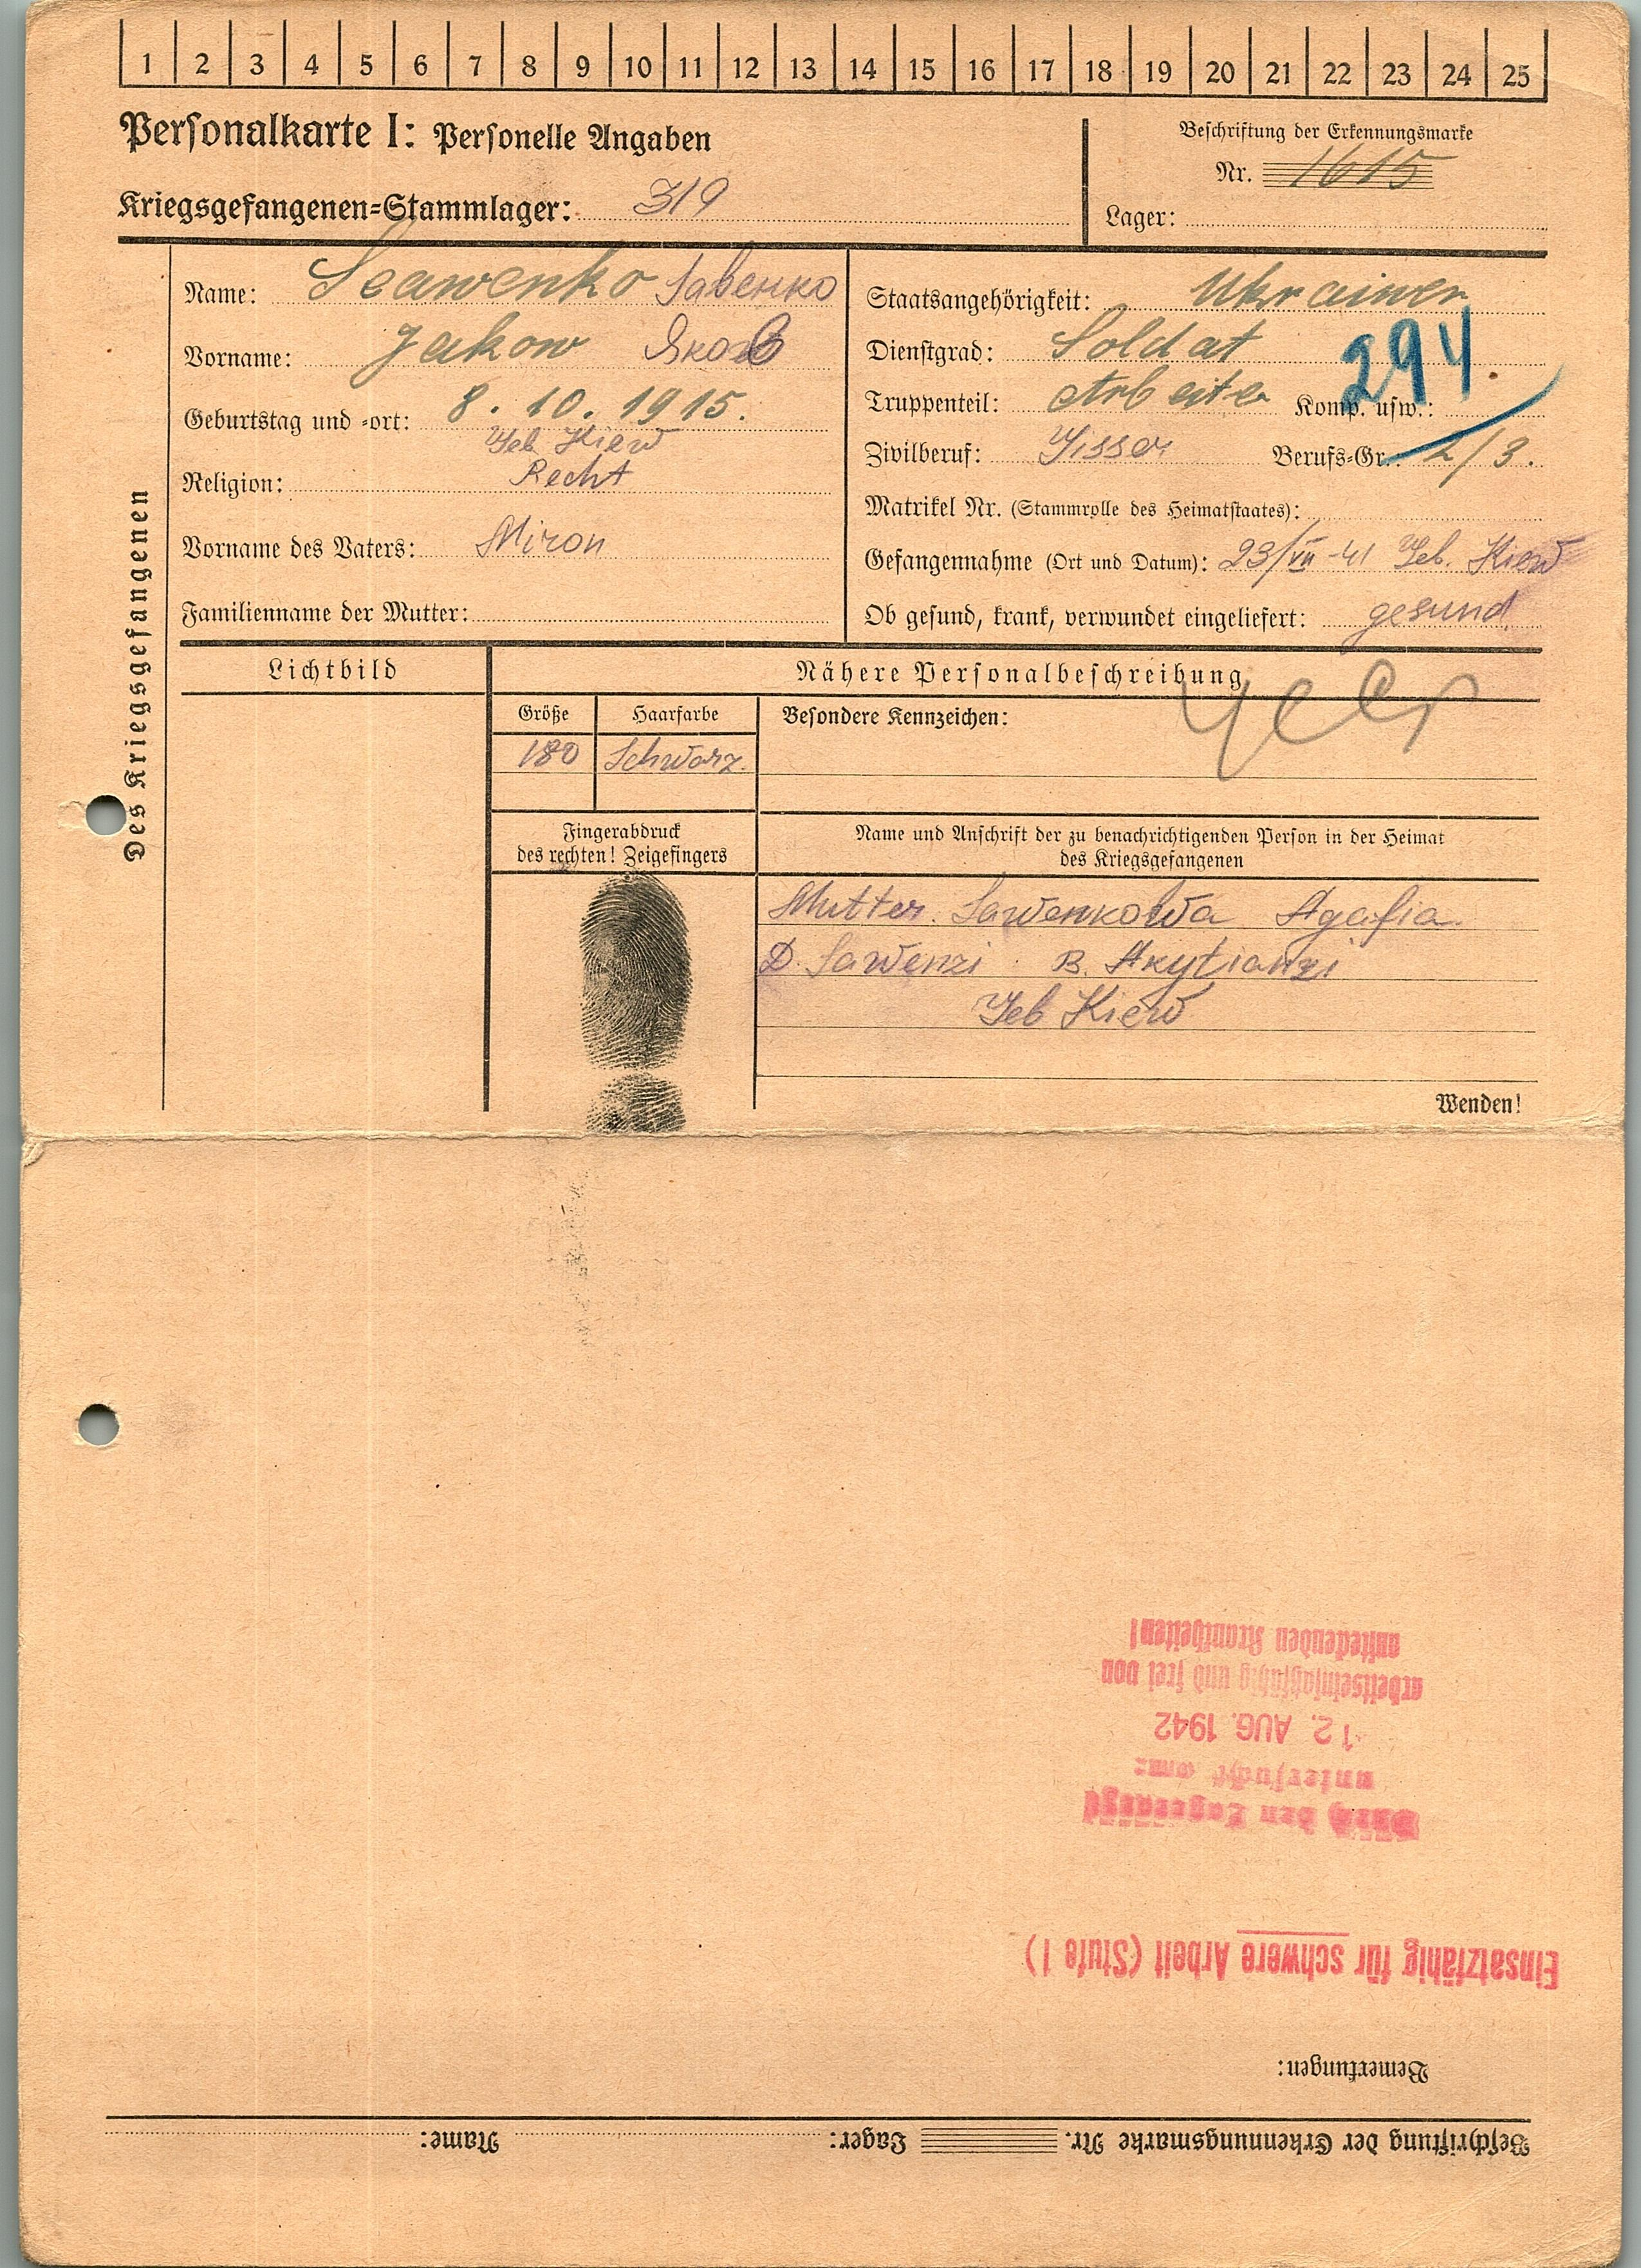 1 2 3 4 5 6 7 8 9 10 11 12 13 14 15 16 17 18 19 20 21 22 23 24 25
Personalkarte I: Personelle Angaben
Kriegsgefangenen-Stammlager: 319
Beschriftung der Erkennungsmarke
Nr. 1615
Lager:
Des Kriegsgefangenen
Name: Seawenko Савенко
Vorname: Jakow Яков
Geburtstag und -ort: 8. 10. 1915.
Geb Kiew
Religion: Recht
Vorname des Vaters: Miron
Familienname der Mutter:
Staatsangehörigkeit: Ukrainer
Dienstgrad: Soldat
294
Truppenteil: Arbeiter Komp. usw.:
Zivilberuf: Berufs-Gr.: 2/3.
Matrikel Nr. (Stammrolle des Heimatstaates):
Gefangennahme (Ort und Datum): 23/VII-41 Geb. Kiew
Ob gesund, krank, verwundet eingeliefert: gesund
Lichtbild
Nähere Personalbeschreibung
Größe Haarfarbe Besondere Kennzeichen:
180 Schwarz.
Fingerabdruck
des rechten! Zeigefingers
Name und Anschrift der zu benachrichtigenden Person in der Heimat
des Kriegsgefangenen
Mutter. Sawenkowa Agafia.
D. Sawenzi B.
Geb Kiew
Wenden!
Beschriftung der Erkennungsmarke Nr. Lager: Name:
Bemerkungen:
Einsatzfähig für schwere Arbeit (Stufe I)
Durch den Lagerarzt
untersucht am:
12. AUG. 1942
arbeitseinsatzfähig und frei von
ansteckenden Krankheiten!